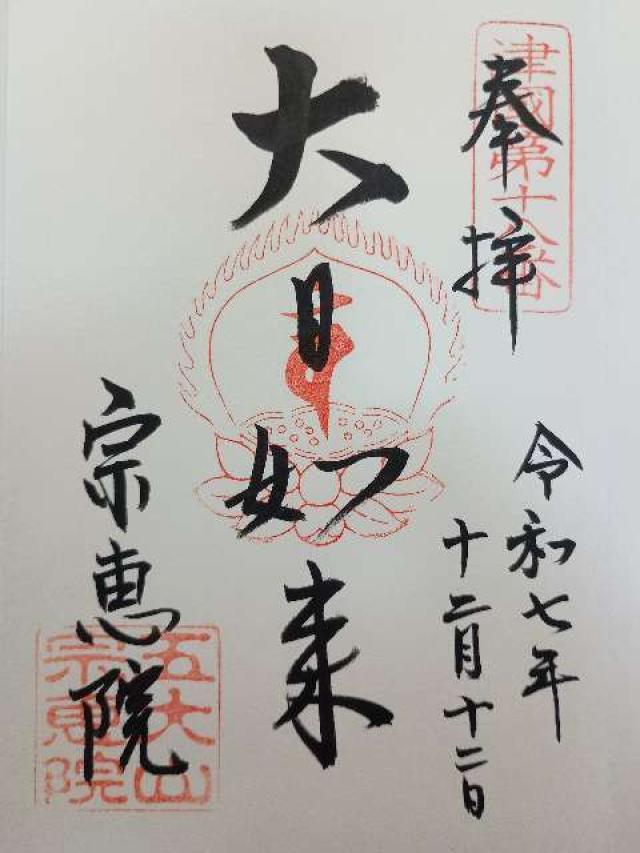 奉拝
津國第十八番
令和七年
十二月十二日
大日如来
宗恵院
五大山
宗恵院